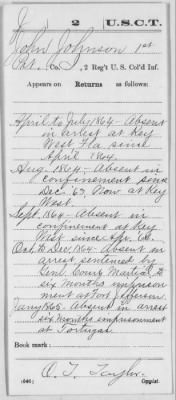 J 2 U.S.C.T.
John Johnson 1st
Pvt., Co. J, 2 Reg't U. S. Col'd Inf.
Appears on Returns as follows:
April to July 1864 - Absent
in arrest at Key
West Fla since
April 1864.
Aug. 1864 - Absent in
confinement since
Dec. '63, Now at Key
West.
Sept. 1864 - Absent in
confinement at Key
West since Apr.
Oct to Dec 1864 - Absent in
arrest sentenced by
Genl. Court Martial to
six months imprison
ment at Fort Jefferson.
Jany 1865. Absent in arrest
six months imprisonment
at Tortugas.
Book mark:
O. T. Taylor
(646) Copyist.